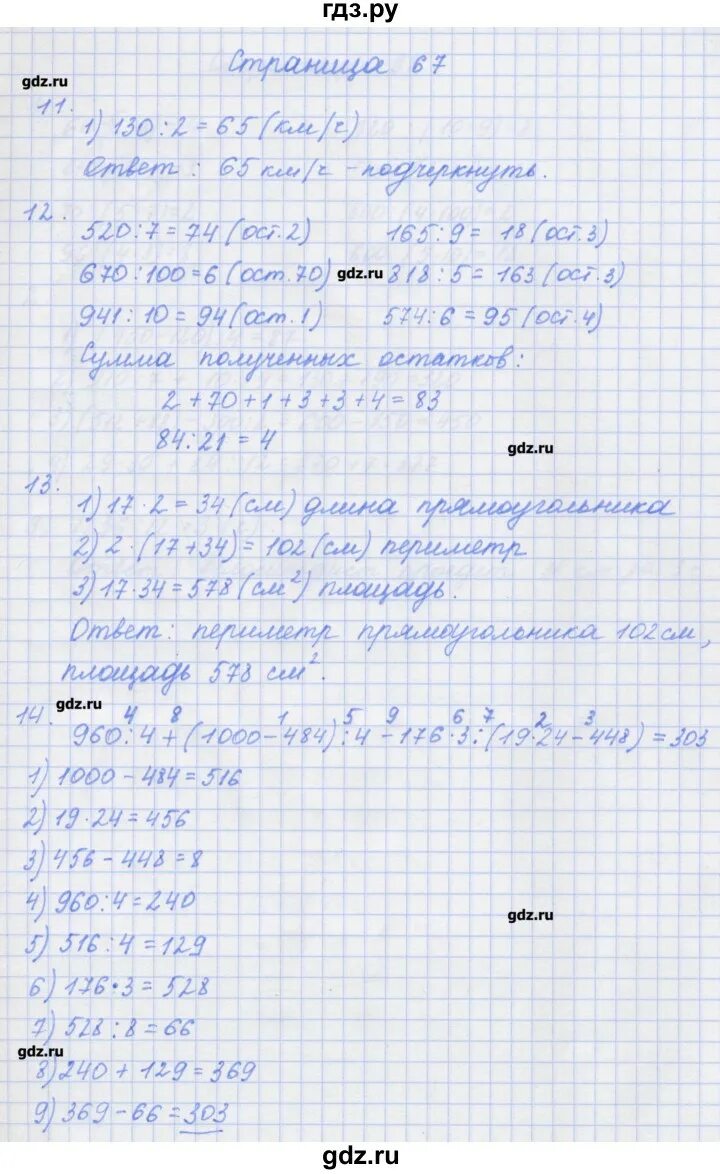 гдз.ру
Страница 67
gdz.ru
11.
1) 130 : 2 = 65 (км/ч)
Ответ : 65 км/ч - подчеркнуть.
12.
520 : 7 = 74 (ост. 2) 165 : 9 = 18 (ост. 3)
670 : 100 = 6 (ост. 70) gdz.ru 818 : 5 = 163 (ост. 3)
941 : 10 = 94 (ост. 1) 574 : 6 = 95 (ост. 4)
Сумма полученных остатков:
2 + 70 + 1 + 3 + 3 + 4 = 83
84 : 21 = 4
gdz.ru
13.
1) 17 · 2 = 34 (см) длина прямоугольника
2) 2 · (17 + 34) = 102 (см) периметр
3) 17 · 34 = 578 (см²) площадь.
Ответ: периметр прямоугольника 102 см,
площадь 578 см².
gdz.ru
4 8 1 5 9 6 7 2 3
14. 960 : 4 + (1000 - 484) : 4 - 176 · 3 : (19 · 24 - 448) = 303
1) 1000 - 484 = 516
2) 19 · 24 = 456
3) 456 - 448 = 8
4) 960 : 4 = 240
gdz.ru
5) 516 : 4 = 129
6) 176 · 3 = 528
7) 528 : 8 = 66
gdz.ru
8) 240 + 129 = 369
9) 369 - 66 = 303
gdz.ru